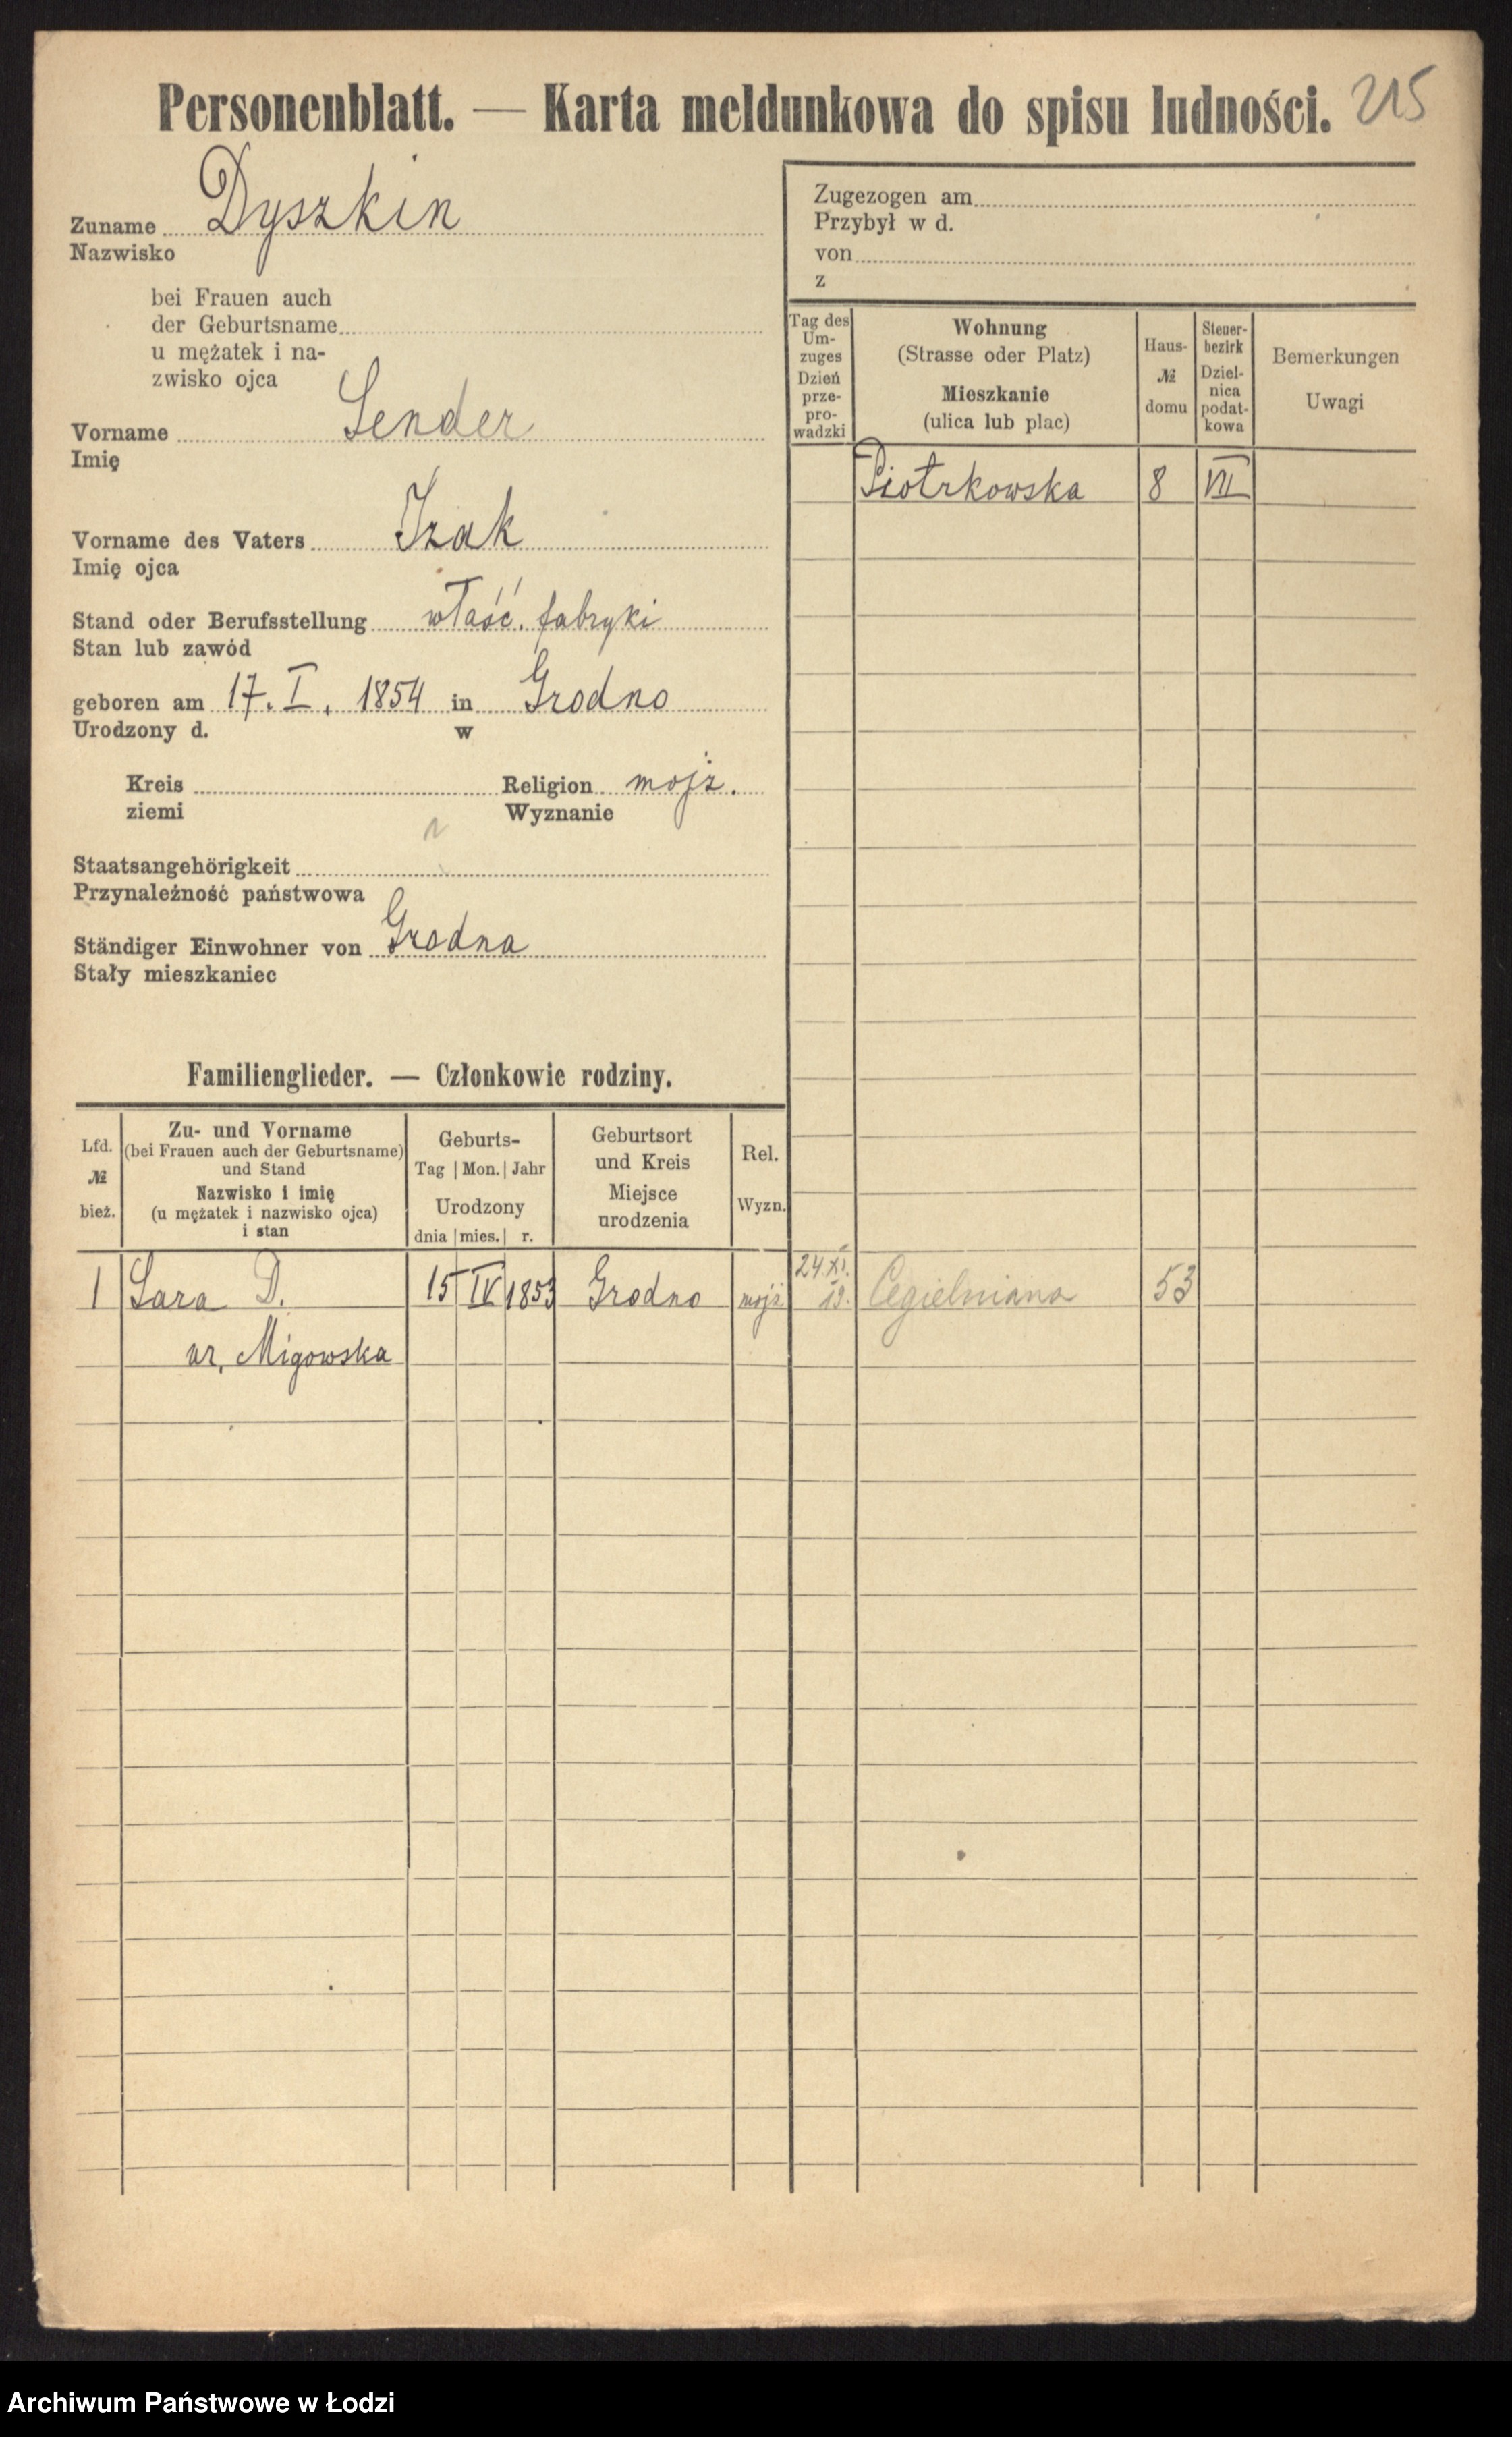 Personenblatt. — Karta meldunkowa do spisu ludności. 215
Zuname Dyszkin
Nazwisko
bei Frauen auch
der Geburtsname
u mężatek i na-
zwisko ojca
Vorname Sender
Imię
Vorname des Vaters Izak
Imię ojca
Stand oder Berufsstellung właść. fabryki
Stan lub zawód
geboren am 17. I. 1854 in Grodno
Urodzony d. w
Kreis Religion mojż.
ziemi Wyznanie
Staatsangehörigkeit
Przynależność państwowa
Ständiger Einwohner von Grodna
Stały mieszkaniec
Zugezogen am
Przybył w d.
von
z
Tag des
Um-
zuges
Dzień
prze-
pro-
wadzki
Wohnung
(Strasse oder Platz)
Mieszkanie
(ulica lub plac)
Haus-
№
domu
Steuer-
bezirk
Dziel-
nica
podat-
kowa
Bemerkungen
Uwagi
Piotrkowska 8 VII
Familienglieder. — Członkowie rodziny.
Lfd.
№
bież.
Zu- und Vorname
(bei Frauen auch der Geburtsname)
und Stand
Nazwisko i imię
(u mężatek i nazwisko ojca)
i stan
Geburts-
Tag | Mon. | Jahr
Urodzony
dnia | mies. | r.
Geburtsort
und Kreis
Miejsce
urodzenia
Rel.
Wyzn.
1 Sara D. 15 IV 1853 Grodno mojż
ur. Migowska
24 XI.
19. Cegielniana 53
Archiwum Państwowe w Łodzi